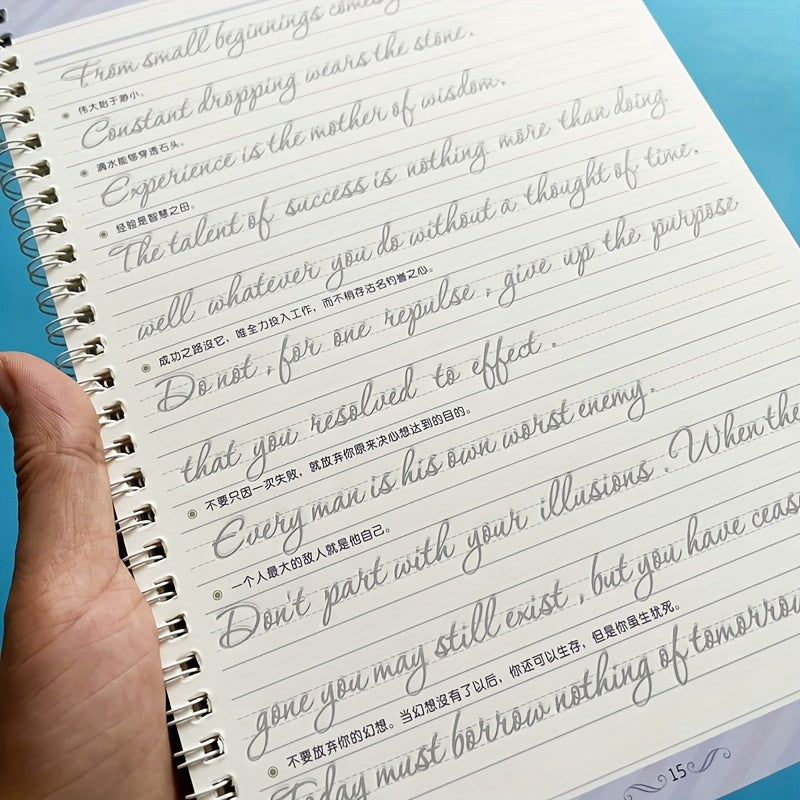 From small beginnings comes
伟大始于渺小。
Constant dropping wears the stone.
滴水能够穿透石头。
Experience is the mother of wisdom.
经验是智慧之母。
The talent of success is nothing more than doing
well whatever you do without a thought of time.
成功之路没它，唯全力投入工作，而不稍存沽名钓誉之心。
Do not , for one repulse , give up the purpose
that you resolved to effect .
不要只因一次失败，就放弃你原来决心想达到的目的。
Every man is his own worst enemy.
一个人最大的敌人就是他自己。
Don't part with your illusions . When the
gone you may still exist , but you have ceas
不要放弃你的幻想。当幻想没有了以后，你还可以生存，但是你虽生犹死。
Today must borrow nothing of tomorrow
15